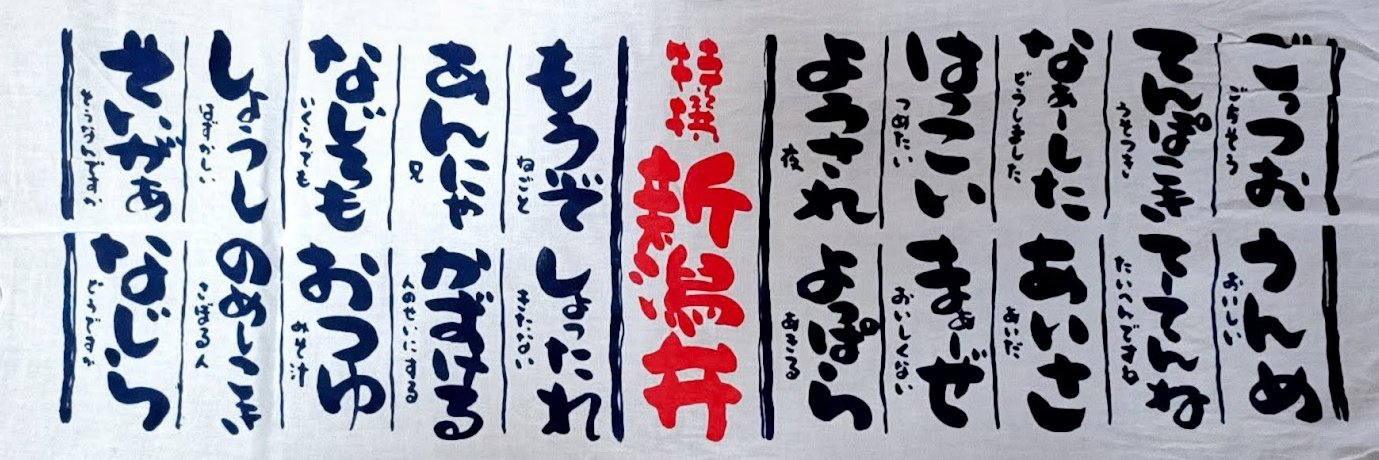 ごっつお
ごちそう
うんめ
おいしい
てんぽこき
うそつき
てーてんね
たいへんですね
なぁーした
どうしました
あいさ
あいだ
はっこい
つめたい
まぁーぜ
おいしくない
ようされ
夜
よっぱら
あきる
特撰
新潟弁
もうぞ
ねごと
しょったれ
きたない
あんにゃ
兄
かずける
人のせいにする
なじょも
いくらでも
おつゆ
みそ汁
しょうし
はずかしい
のめしこき
さぼる人
そいがあ
そうなんですか
なじら
どうですか